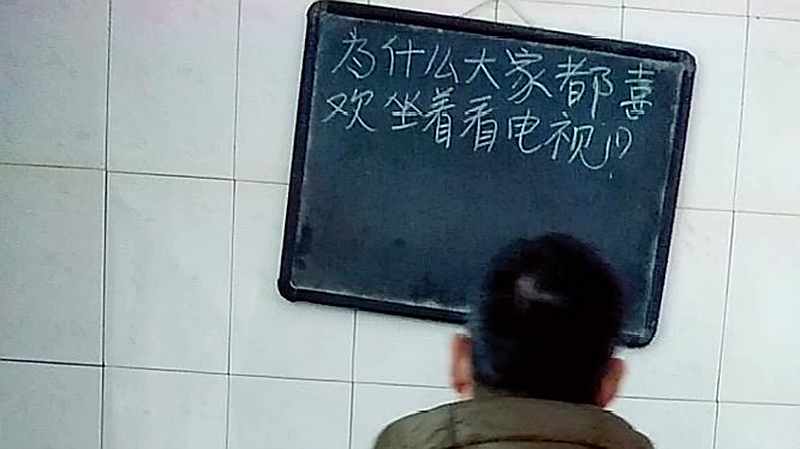 为什么大家都喜
欢坐着看电视?